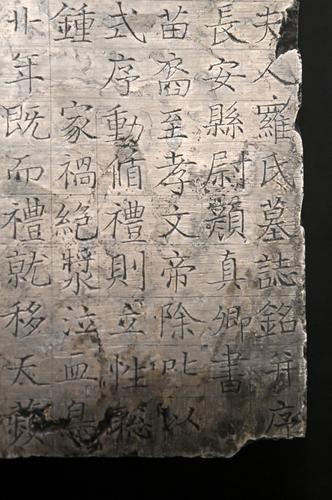 夫人羅氏墓誌銘并序
長安縣尉顏真卿書
苗裔至孝文帝除叱以
式序動循禮則立性聰
鍾 家禍絕漿泣血鳥
丱年既而禮就移天蘋